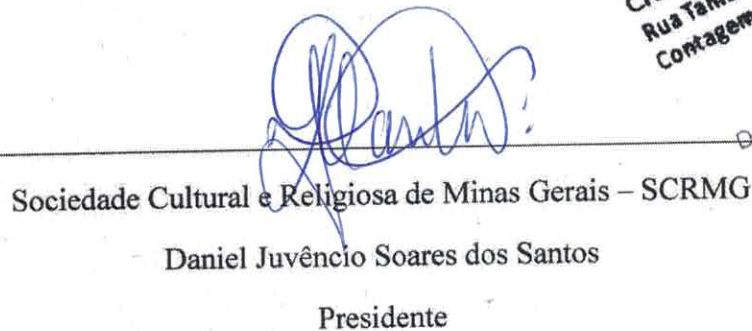 Rua
Contagem
Sociedade Cultural e Religiosa de Minas Gerais – SCRMG
Daniel Juvêncio Soares dos Santos
Presidente